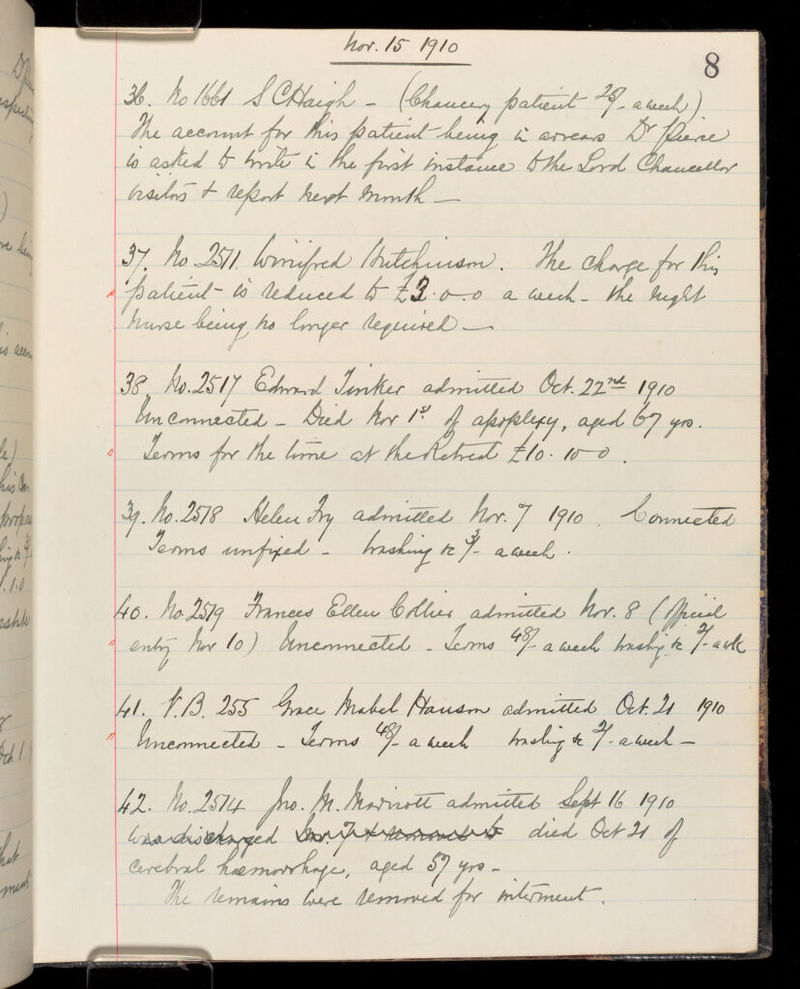 Nov. 15 1910
8
36. No 1661 S C Haigh - (Chancery patient 25/- a week)
The account for this patient being in arrears Dr Pierce
is asked to write in the first instance to the Lord Chancellor
visitors & report next month -
37. No. 2511 Winifred Hutchinson. The charge for this
patient is reduced to £3.0.0 a week - the night
nurse being no longer required -
38 No. 2517 Edward Tinker admitted Oct. 22nd 1910
Unconnected - Died Nov 1st of apoplexy, aged 67 yrs.
Terms for the time at the Retreat £10.10-0.
39. No. 2518 Helen Fry admitted Nov. 7 1910. Connected
Terms unfixed - Washing &c 3/- a week.
40. No. 2519 Frances Ellen Collier admitted Nov. 8 (Official
entry Nov 10) Unconnected - Terms 48/- a week washing &c 2/- a wk
41. V.B. 255 Grace Mabel Hanson admitted Oct. 21 1910
Unconnected - Terms 48/- a week washing &c 2/- a week -
42. No. 2514 Jno. M. Marriott admitted Sept 16 1910
was discharged died Oct 21 of
cerebral hæmorrhage, aged 57 yrs -
The remains were removed for interment.